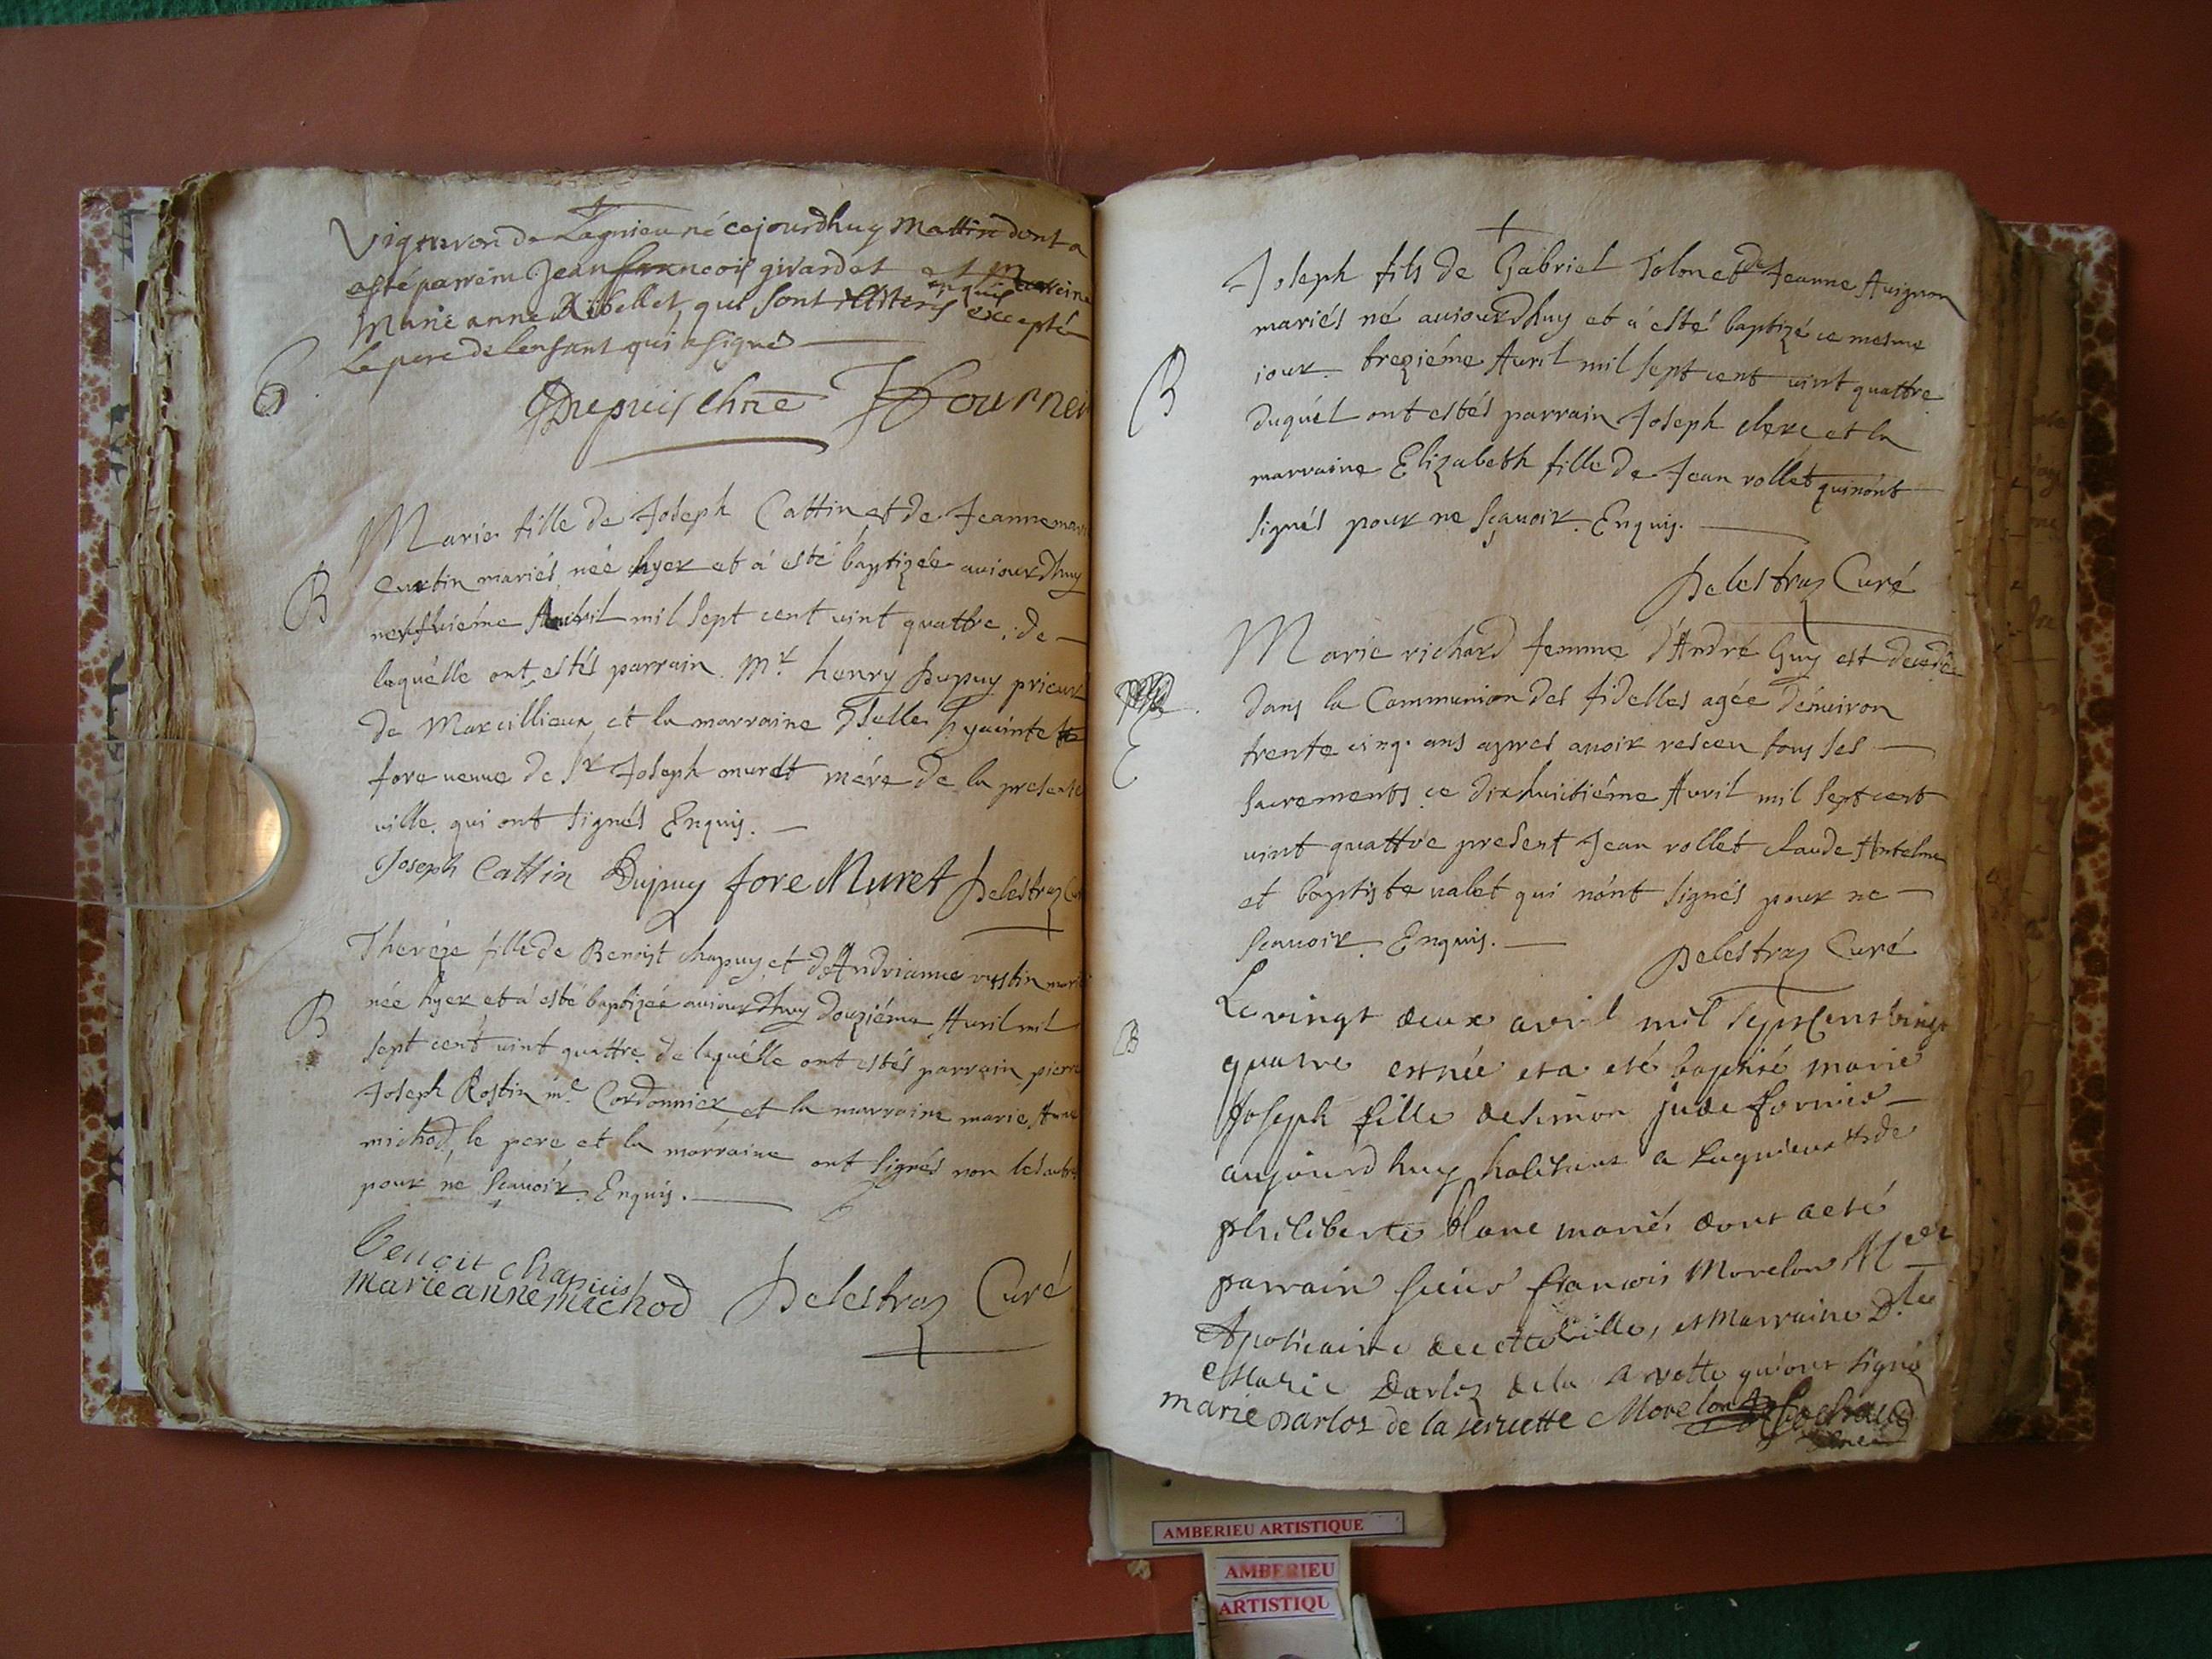 Vigneron de Lagnieu né cejourdhuy Mattin dont a
esté parrein Jean francois girardet et Marreine
Marie anne Ribellet, qui sont illiterés enquis excepté
Le pere de lenfant qui a signé
Dupuis chne Fournier
B
Marie fille de Joseph Cattin et de Jeanne marie
curtin mariés née hyer et á esté baptizée auiourdhuy
neufuiéme Auril mil sept cent uint quattre, de
laquélle ont estés parrain Mr henry Dupuy prieur
de Marcillieux et la marraine Dselle hyacinte
fore ueuue de Sr Joseph muret mére de la presente
uille qui ont signés Enquis.
Joseph Cattin Dupuy fore Muret Delestraz Curé
B
Therése fille de Benoist chapuy et d'Andrianne rostin mariés
née hyer et á esté baptizée auiourdhuy douziéme Auril mil
sept cent uint quattre de laquélle ont estés parrain pierre
Joseph Rostin me Cordonnier et la marraine marie Anne
michod, le pere et la marraine ont signés non les autres
pour ne sçauoir. Enquis.
benoit chapuis
marie anne michod Delestraz Curé
Joseph fils de Gabriel Tolon et de Jeanne Auignon
mariés né auiourdhuy et á esté baptizé ce mesme
B
iour treziéme Auril mil sept cent uint quattre
duquél ont estés parrain Joseph clerc et la
marraine Elizabeth fille de Jean rollet qui nónt
signés pour ne sçauoir. Enquis.
Delestraz Curé
Marie richard femme d'André Guy est decedée
dans la Communion des fidelles agée dénuiron
trente cinq ans apres auoir resceu tous ses
sacrements ce dixhuictiéme Auril mil sept cent
uint quattre present Jean rollet claude Antelme
et baptiste ualet qui nónt signés pour ne
scauoir. Enquis.
Delestraz Curé
B
Le vingt deux avril mil sept cent vingt
quatre est née et a eté baptisé marie
Joseph fille de simon jude fornier
aujourdhuy habitant a Lagnieux et de
philiberte blanc mariés dont a eté
parrain sieur francois Morelon Md
Apoticaire de cette ville, et Marraine Dlle
Marie Darloz de la servette qui ont signé
marie darloz de la servette Morelon
AMBERIEU ARTISTIQUE
AMBERIEU
ARTISTIQU